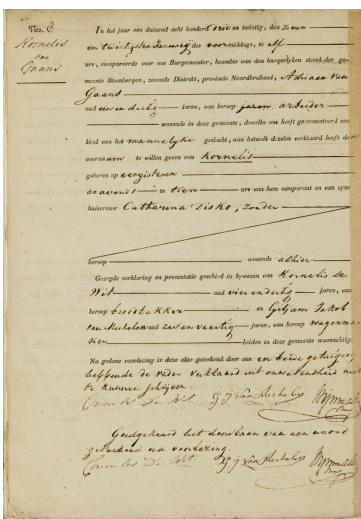 No. 8
Kornelis
van
Gaans
In het jaar een duizend acht honderd drie en twintig, den zeven
en twintigsten Januarij des voormiddags, te elf
ure, compareerde voor ons Burgemeester, beambte van den burgerlyken stand der ge-
meente Steenbergen, zevende Distrikt, provincie Noordbraband, Adriaan van
Gaans
oud een en dertig jaren, van beroep arbeider
wonende in deze gemeente, dewelke ons heeft gepresenteerd een
kind van het mannelyke geslacht, aan hetwelk dezelve verklaard heeft de
voornaam te willen geven van Kornelis
geboren op eergisteren
des avonds te tien ure van hem comparant en van zyne
huisvrouw Catharina Disko, zonder
beroep wonende alhier
Gezegde verklaring en presentatie geschied in bywezen van Kornelis de
Wit oud vier en dertig jaren, van
beroep broodbakker en Gitjam Jakob
van Mechelen oud zes en veertig jaren, van beroep wagenma
ker beiden in deze gemeente woonachtig.
Na gedane voorlezing is deze akte geteekend door ons en beide getuigen
hebbende de vader verklaard uit onwetendheid niet
te kunnen schrijven
Cornelis De Wit G J Van Mechelen
Goedgekeurd het doorhalen van een woord
geteekend na voorlezing.
Cornelis De Wit G J Van Mechelen